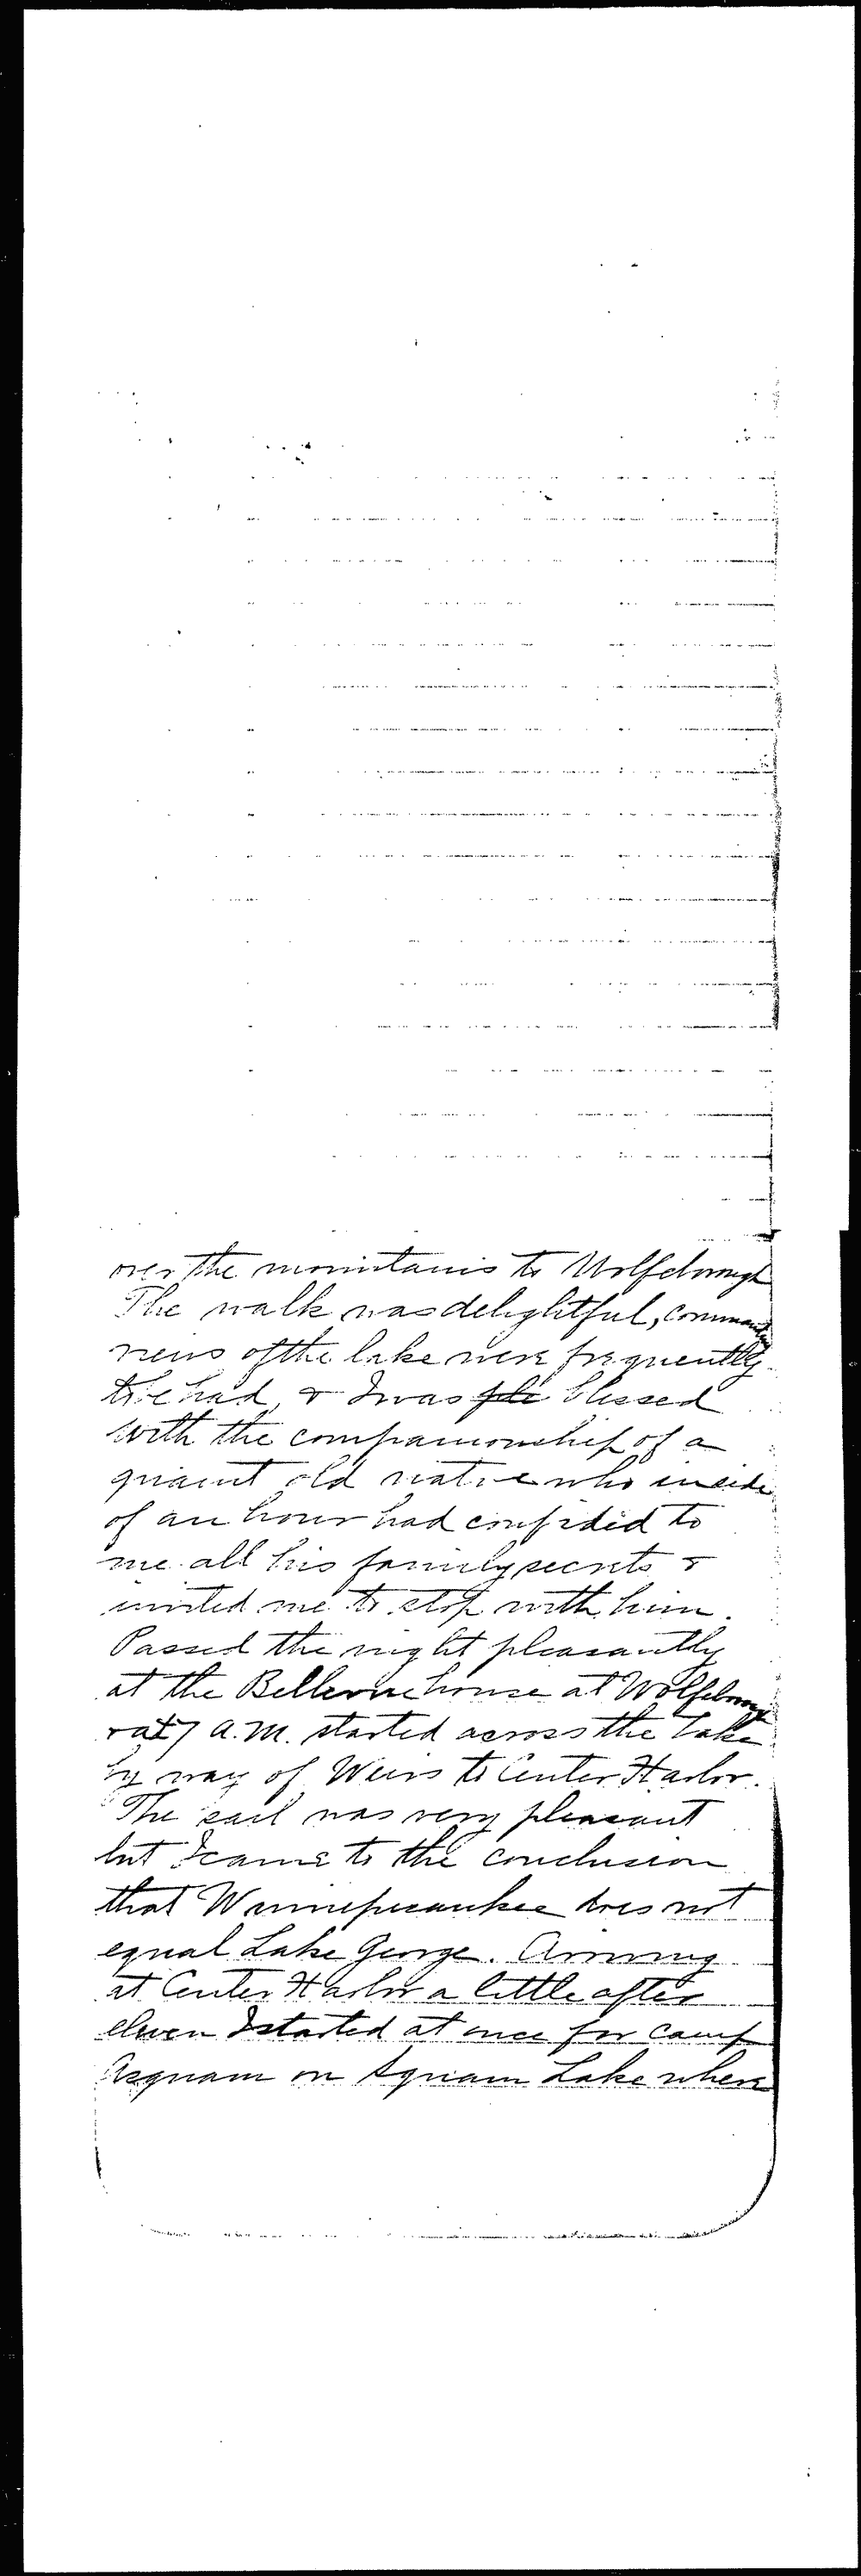 over the mountains to Wolfeborough
The walk was delightful, commanding
views of the lake were frequently
to be had, & I was blessed
with the companionship of a
quaint old native who inside
of an hour had confided to
me all his family secrets &
invited me to stop with him.
Passed the night pleasantly
at the Bellevue house at Wolfeborough
& at 7 A.M. started across the lake
by way of Weirs to Center Harbor.
The sail was very pleasant
but I came to the conclusion
that Winnepesaukee does not
equal Lake George. Arriving
at Center Harbor a little after
eleven I started at once for Camp
Asquam on Squam Lake where